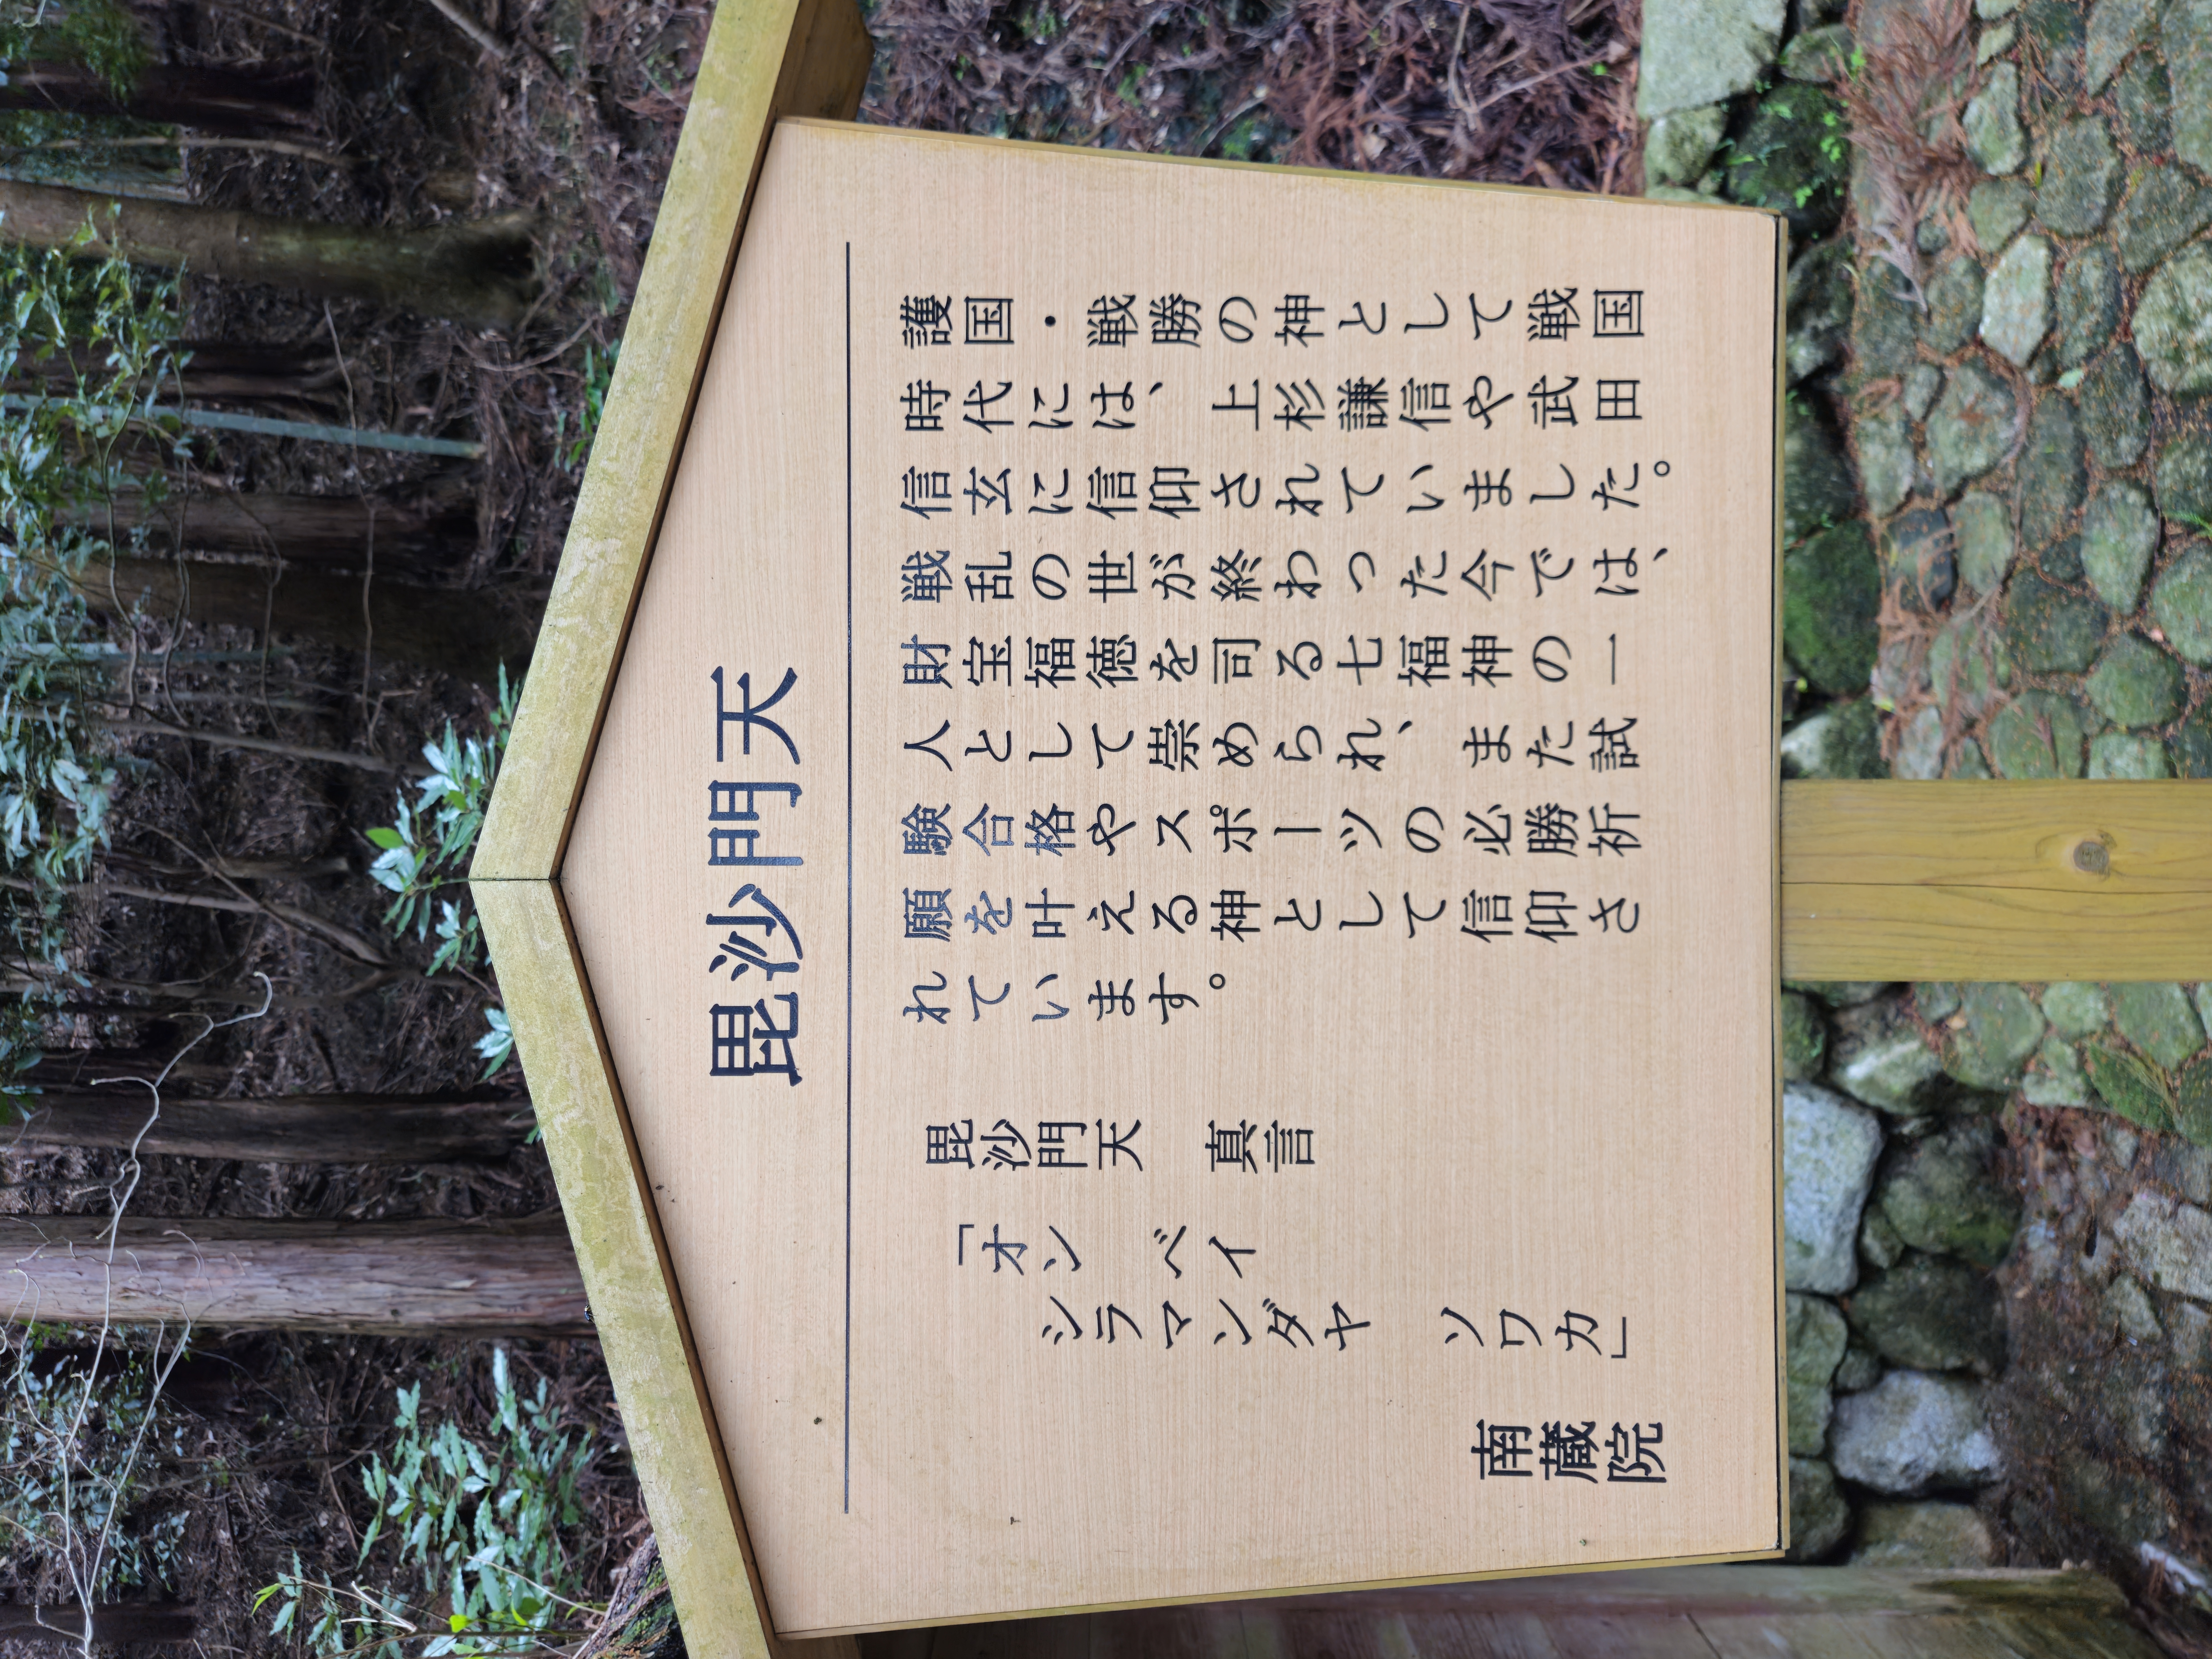 毘沙門天
護国・戦勝の神として戦国
時代には、上杉謙信や武田
信玄に信仰されていました。
戦乱の世が終わった今では、
財宝福徳を司る七福神の一
人として崇められ、また試
験合格やスポーツの必勝祈
願を叶える神として信仰さ
れています。
毘沙門天　真言
「オン　ベイ
シラマンダヤ　ソワカ」
南蔵院